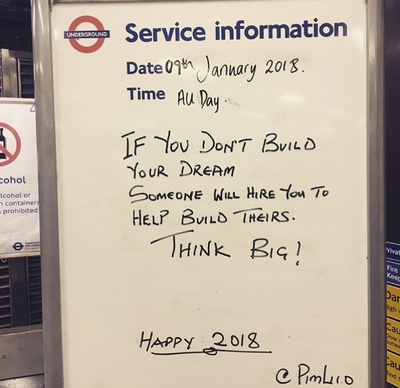 UNDERGROUND
Service information
Date 09th January 2018.
Time All Day.
IF YOU DON'T BUILD
YOUR DREAM
SOMEONE WILL HIRE YOU TO
HELP BUILD THEIRS.
THINK BIG!
HAPPY 2018
@PIMLICO
cohol
lcohol or
n containers
s prohibited
Privat
Fire
Keep
Dan
Cau
Cau